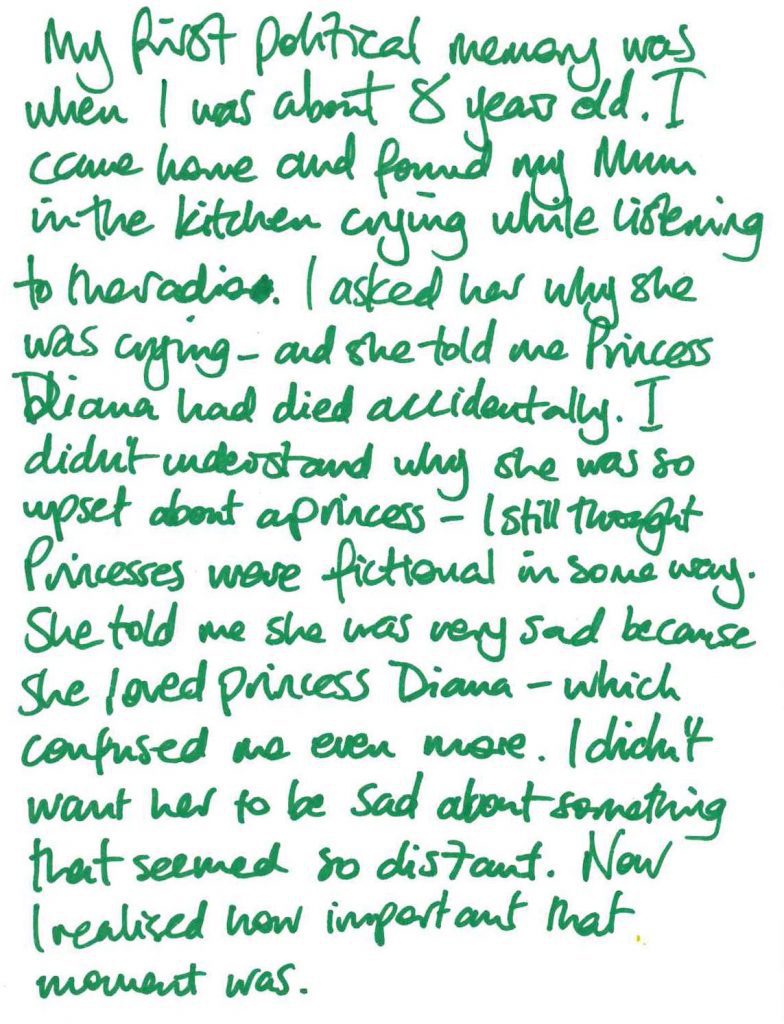 My first political memory was
when I was about 8 years old. I
came home and found my Mum
in the kitchen crying while listening
to the radio. I asked her why she
was crying - and she told me Princess
Diana had died accidentally. I
didn't understand why she was so
upset about a princess - I still thought
Princesses were fictional in some way.
She told me she was very sad because
she loved princess Diana - which
confused me even more. I didn't
want her to be sad about something
that seemed so distant. Now
I realised how important that
moment was.